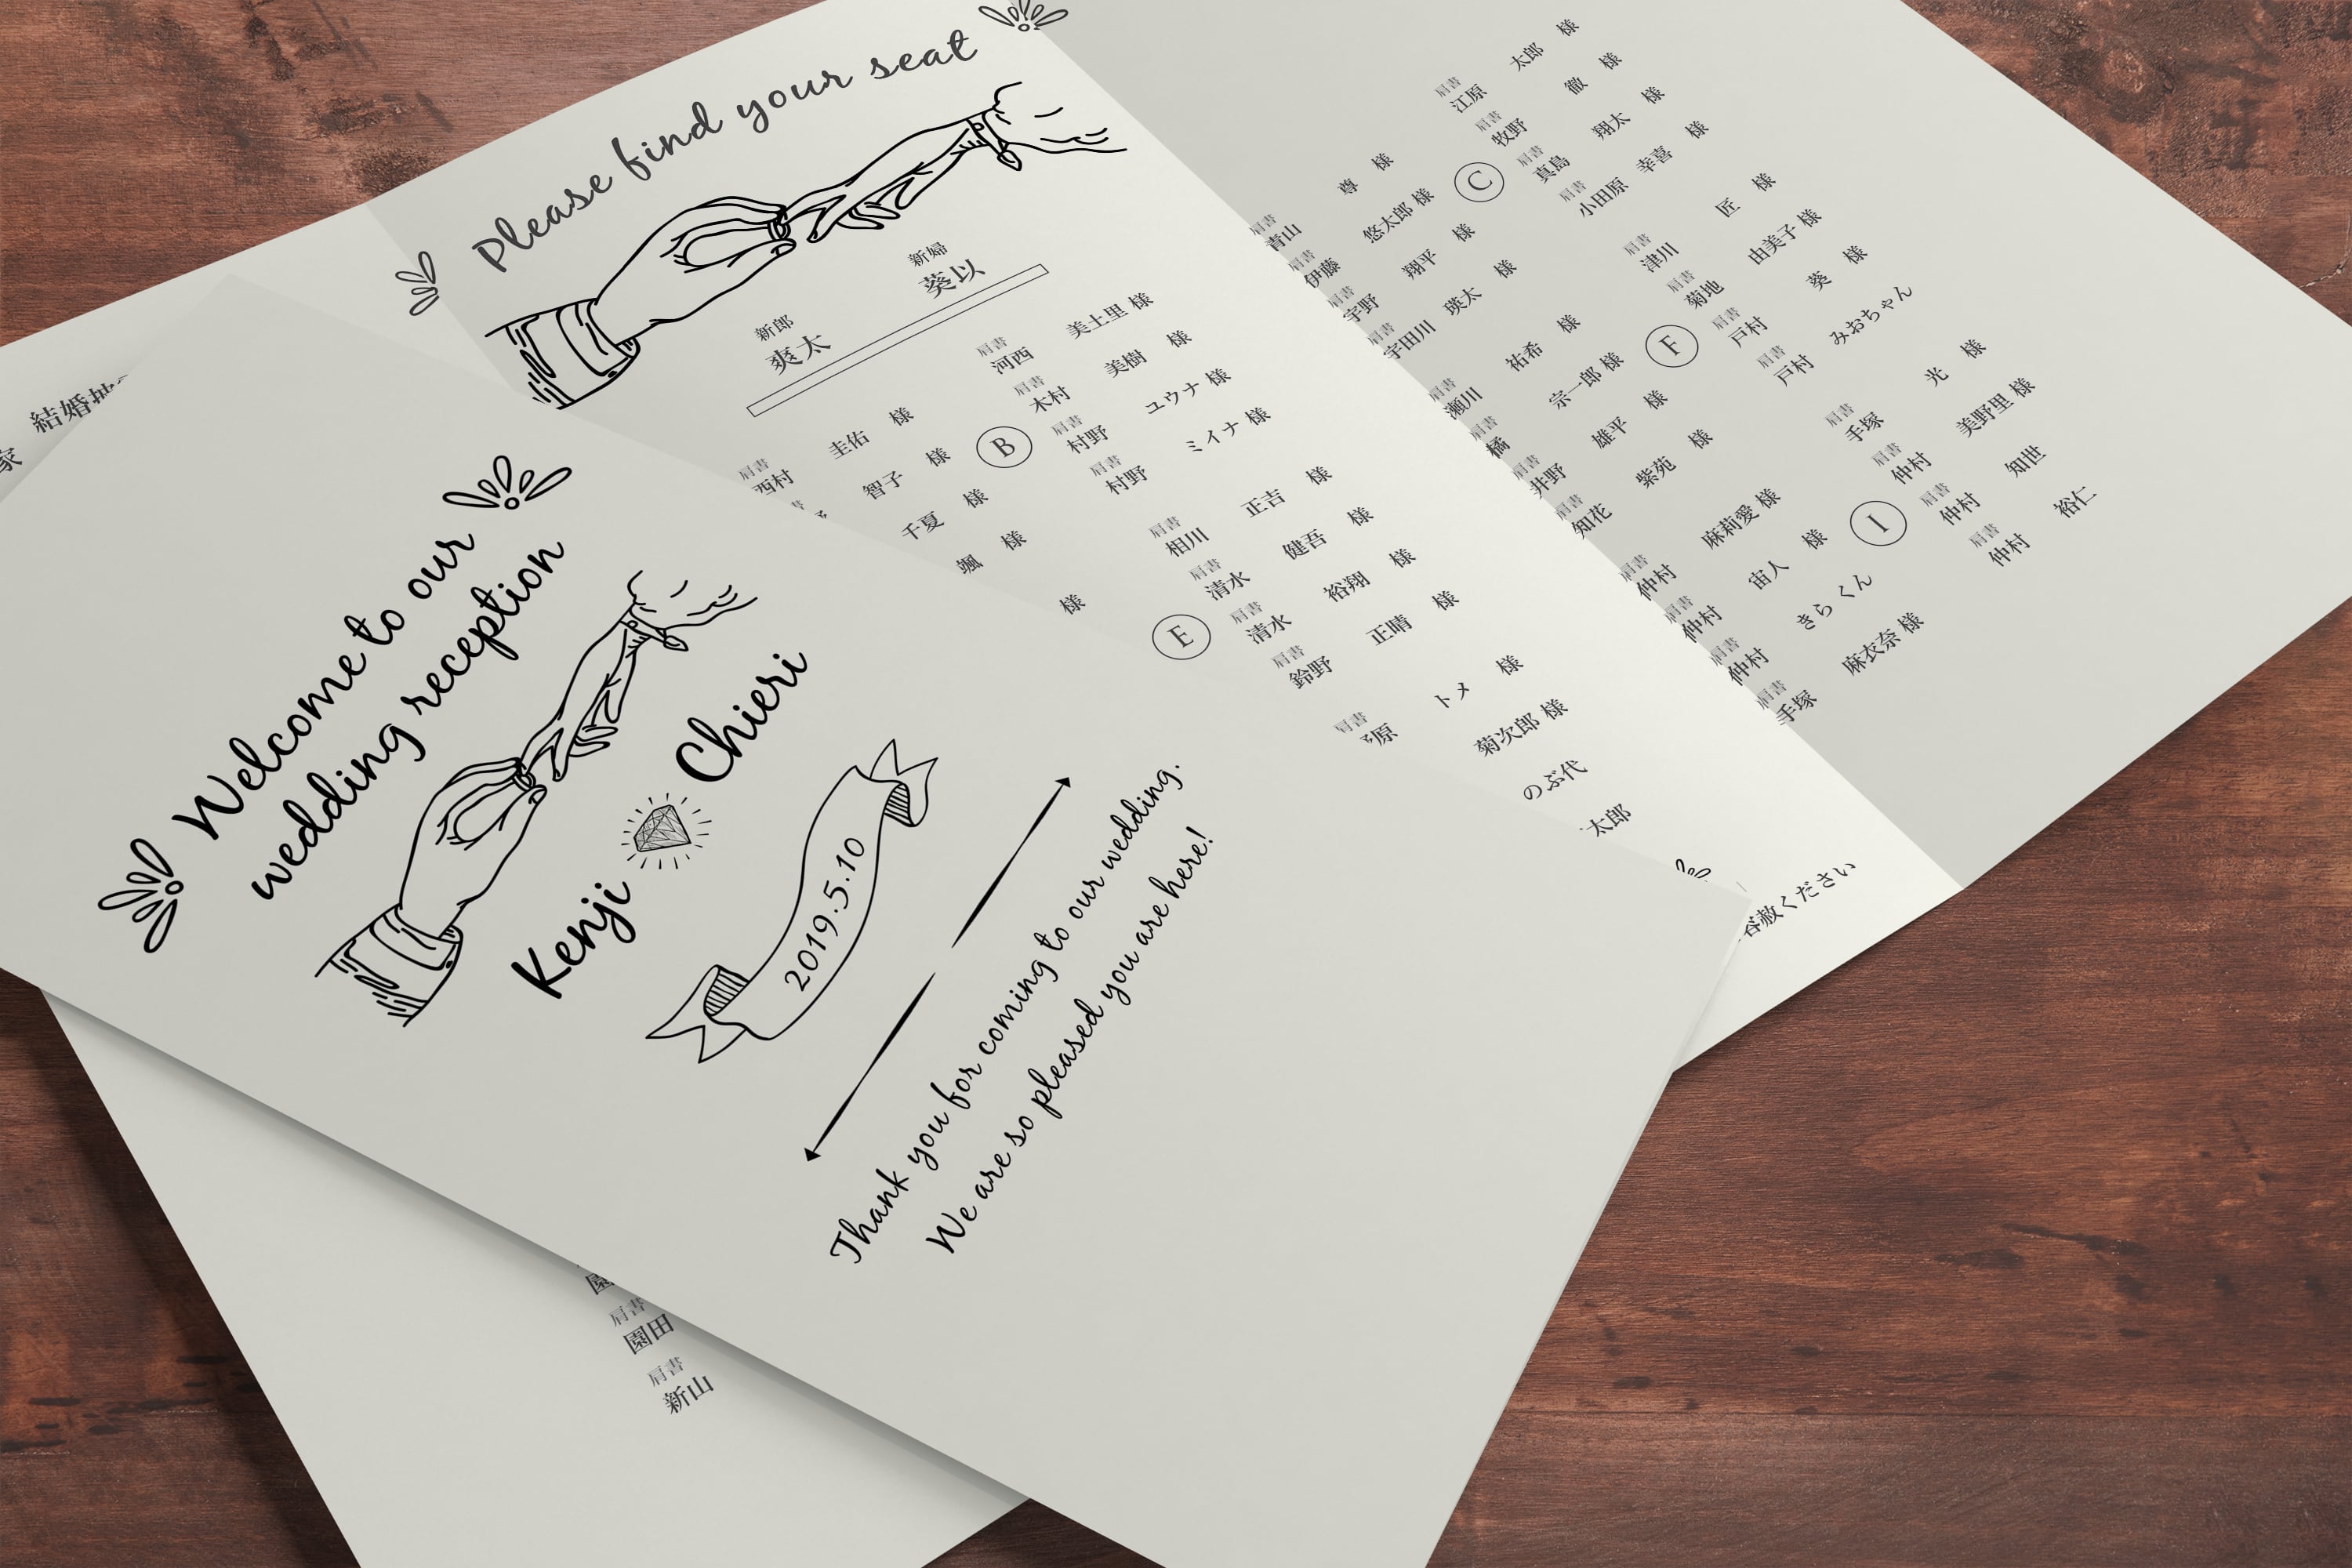 Welcome to our
wedding reception
Kenji Chieri
2019.5.10
Thank you for coming to our wedding.
We are so pleased you are here!
Please find your seat
新郎
爽太
新婦
葵以
家 結婚
肩書
西村 圭佑 様
智子 様
千夏 様
颯 様
様
B
肩書
河西 美土里 様
肩書
木村 美樹 様
肩書
村野 ユウナ 様
肩書
村野 ミイナ 様
E
肩書
相川 正吉 様
肩書
清水 健吾 様
肩書
清水 裕翔 様
肩書
鈴野 正晴 様
肩書
原 トメ 様
菊次郎 様
のぶ代
太郎
容赦ください
肩書
青山 尊 様
肩書
伊藤 悠太郎 様
肩書
宇野 翔平 様
肩書
宇田川 瑛太 様
C
肩書
江原 太郎 様
肩書
牧野 徹 様
肩書
真島 翔太 様
肩書
小田原 幸喜 様
肩書
瀬川 祐希 様
肩書
橘 宗一郎 様
肩書
井野 雄平 様
肩書
知花 紫苑 様
F
肩書
津川 匠 様
肩書
菊地 由美子 様
肩書
戸村 葵 様
肩書
戸村 みおちゃん
肩書
仲村 麻莉愛 様
肩書
仲村 宙人 様
肩書
仲村 きら くん
肩書
手塚 麻衣奈 様
I
肩書
手塚 光 様
肩書
仲村 美野里 様
肩書
仲村 知世
肩書
仲村 裕仁
園
肩書
園田
肩書
新山